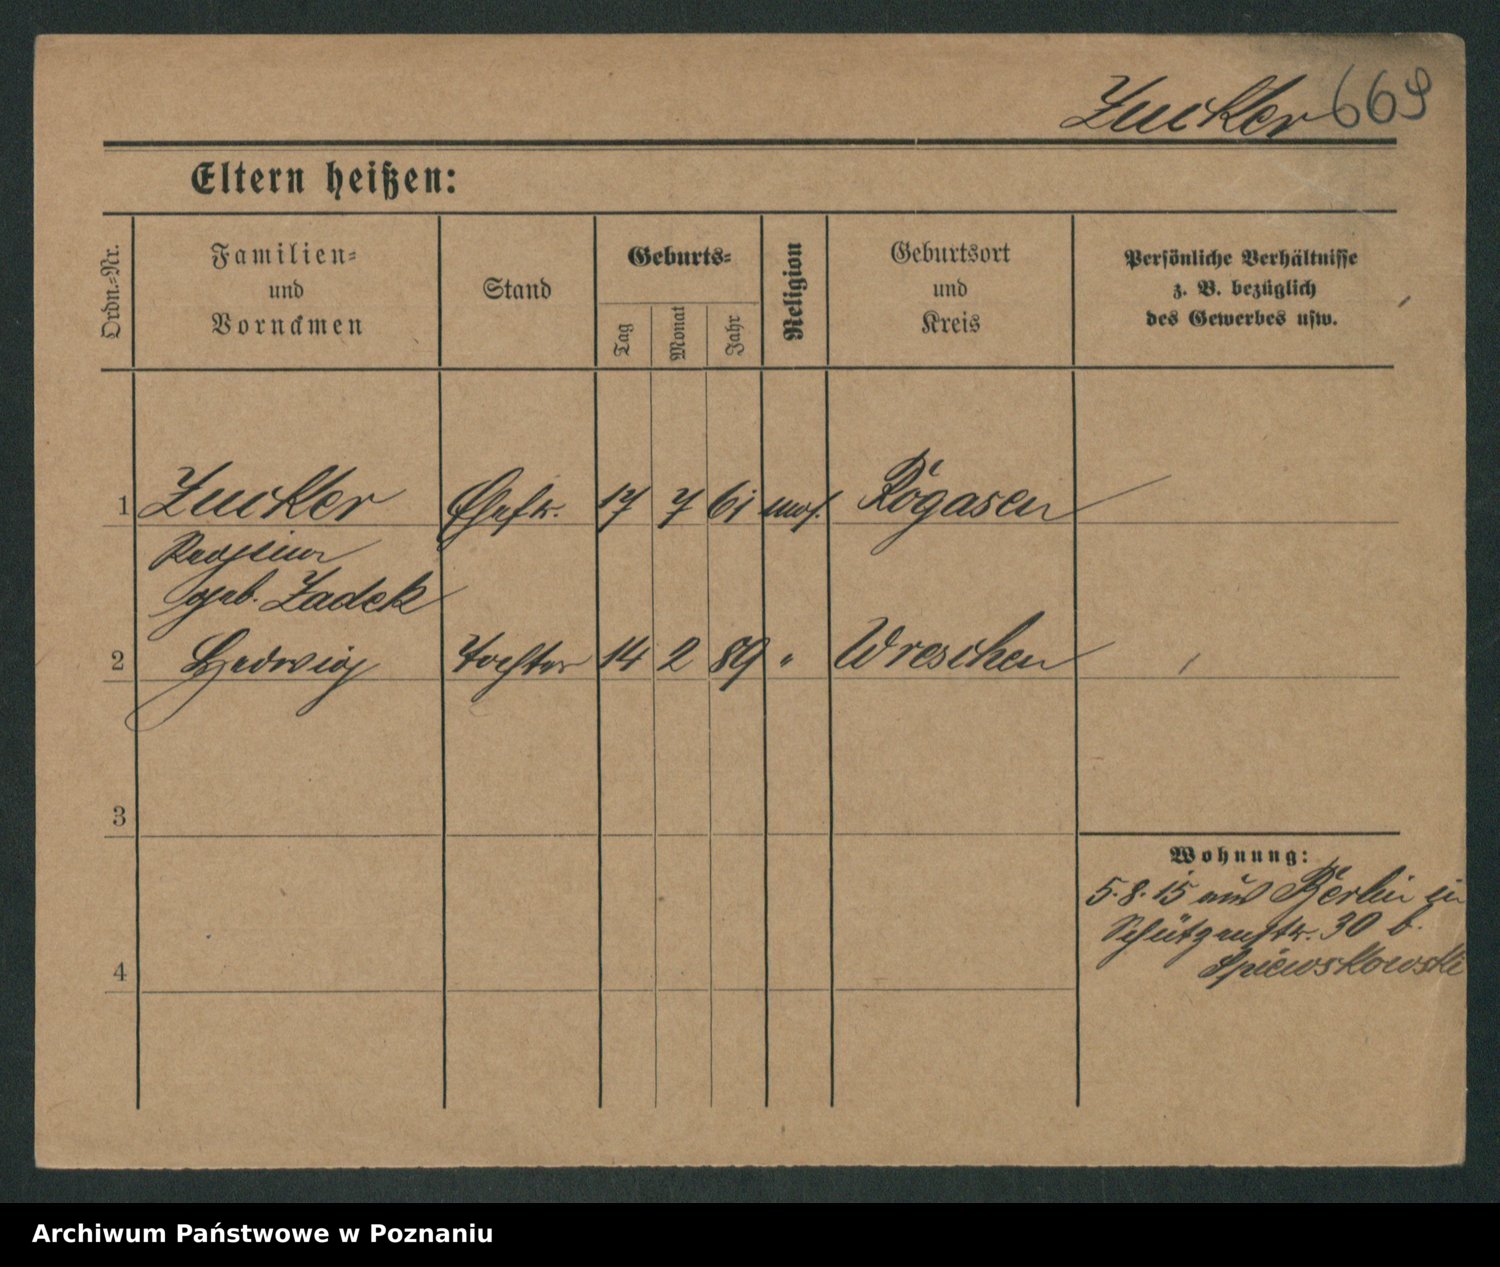 Zuckter 669
Eltern heißen:
Ordn.-Nr.
Familien-
und
Vornamen
Stand
Geburts-
Tag
Monat
Jahr
Religion
Geburtsort
und
Kreis
Persönliche Verhältnisse
z. B. bezüglich
des Gewerbes usw.
1 Zuckter Ehefr. 17 7 61 mos. Rogasen
geb. Zadek
2 Hedwig Tochter 14 2 89 " Wreschen
3
Wohnung:
5.8.15 aus Berlin in
Schützenstr. 30 b.
Spiewskowski
4
Archiwum Państwowe w Poznaniu